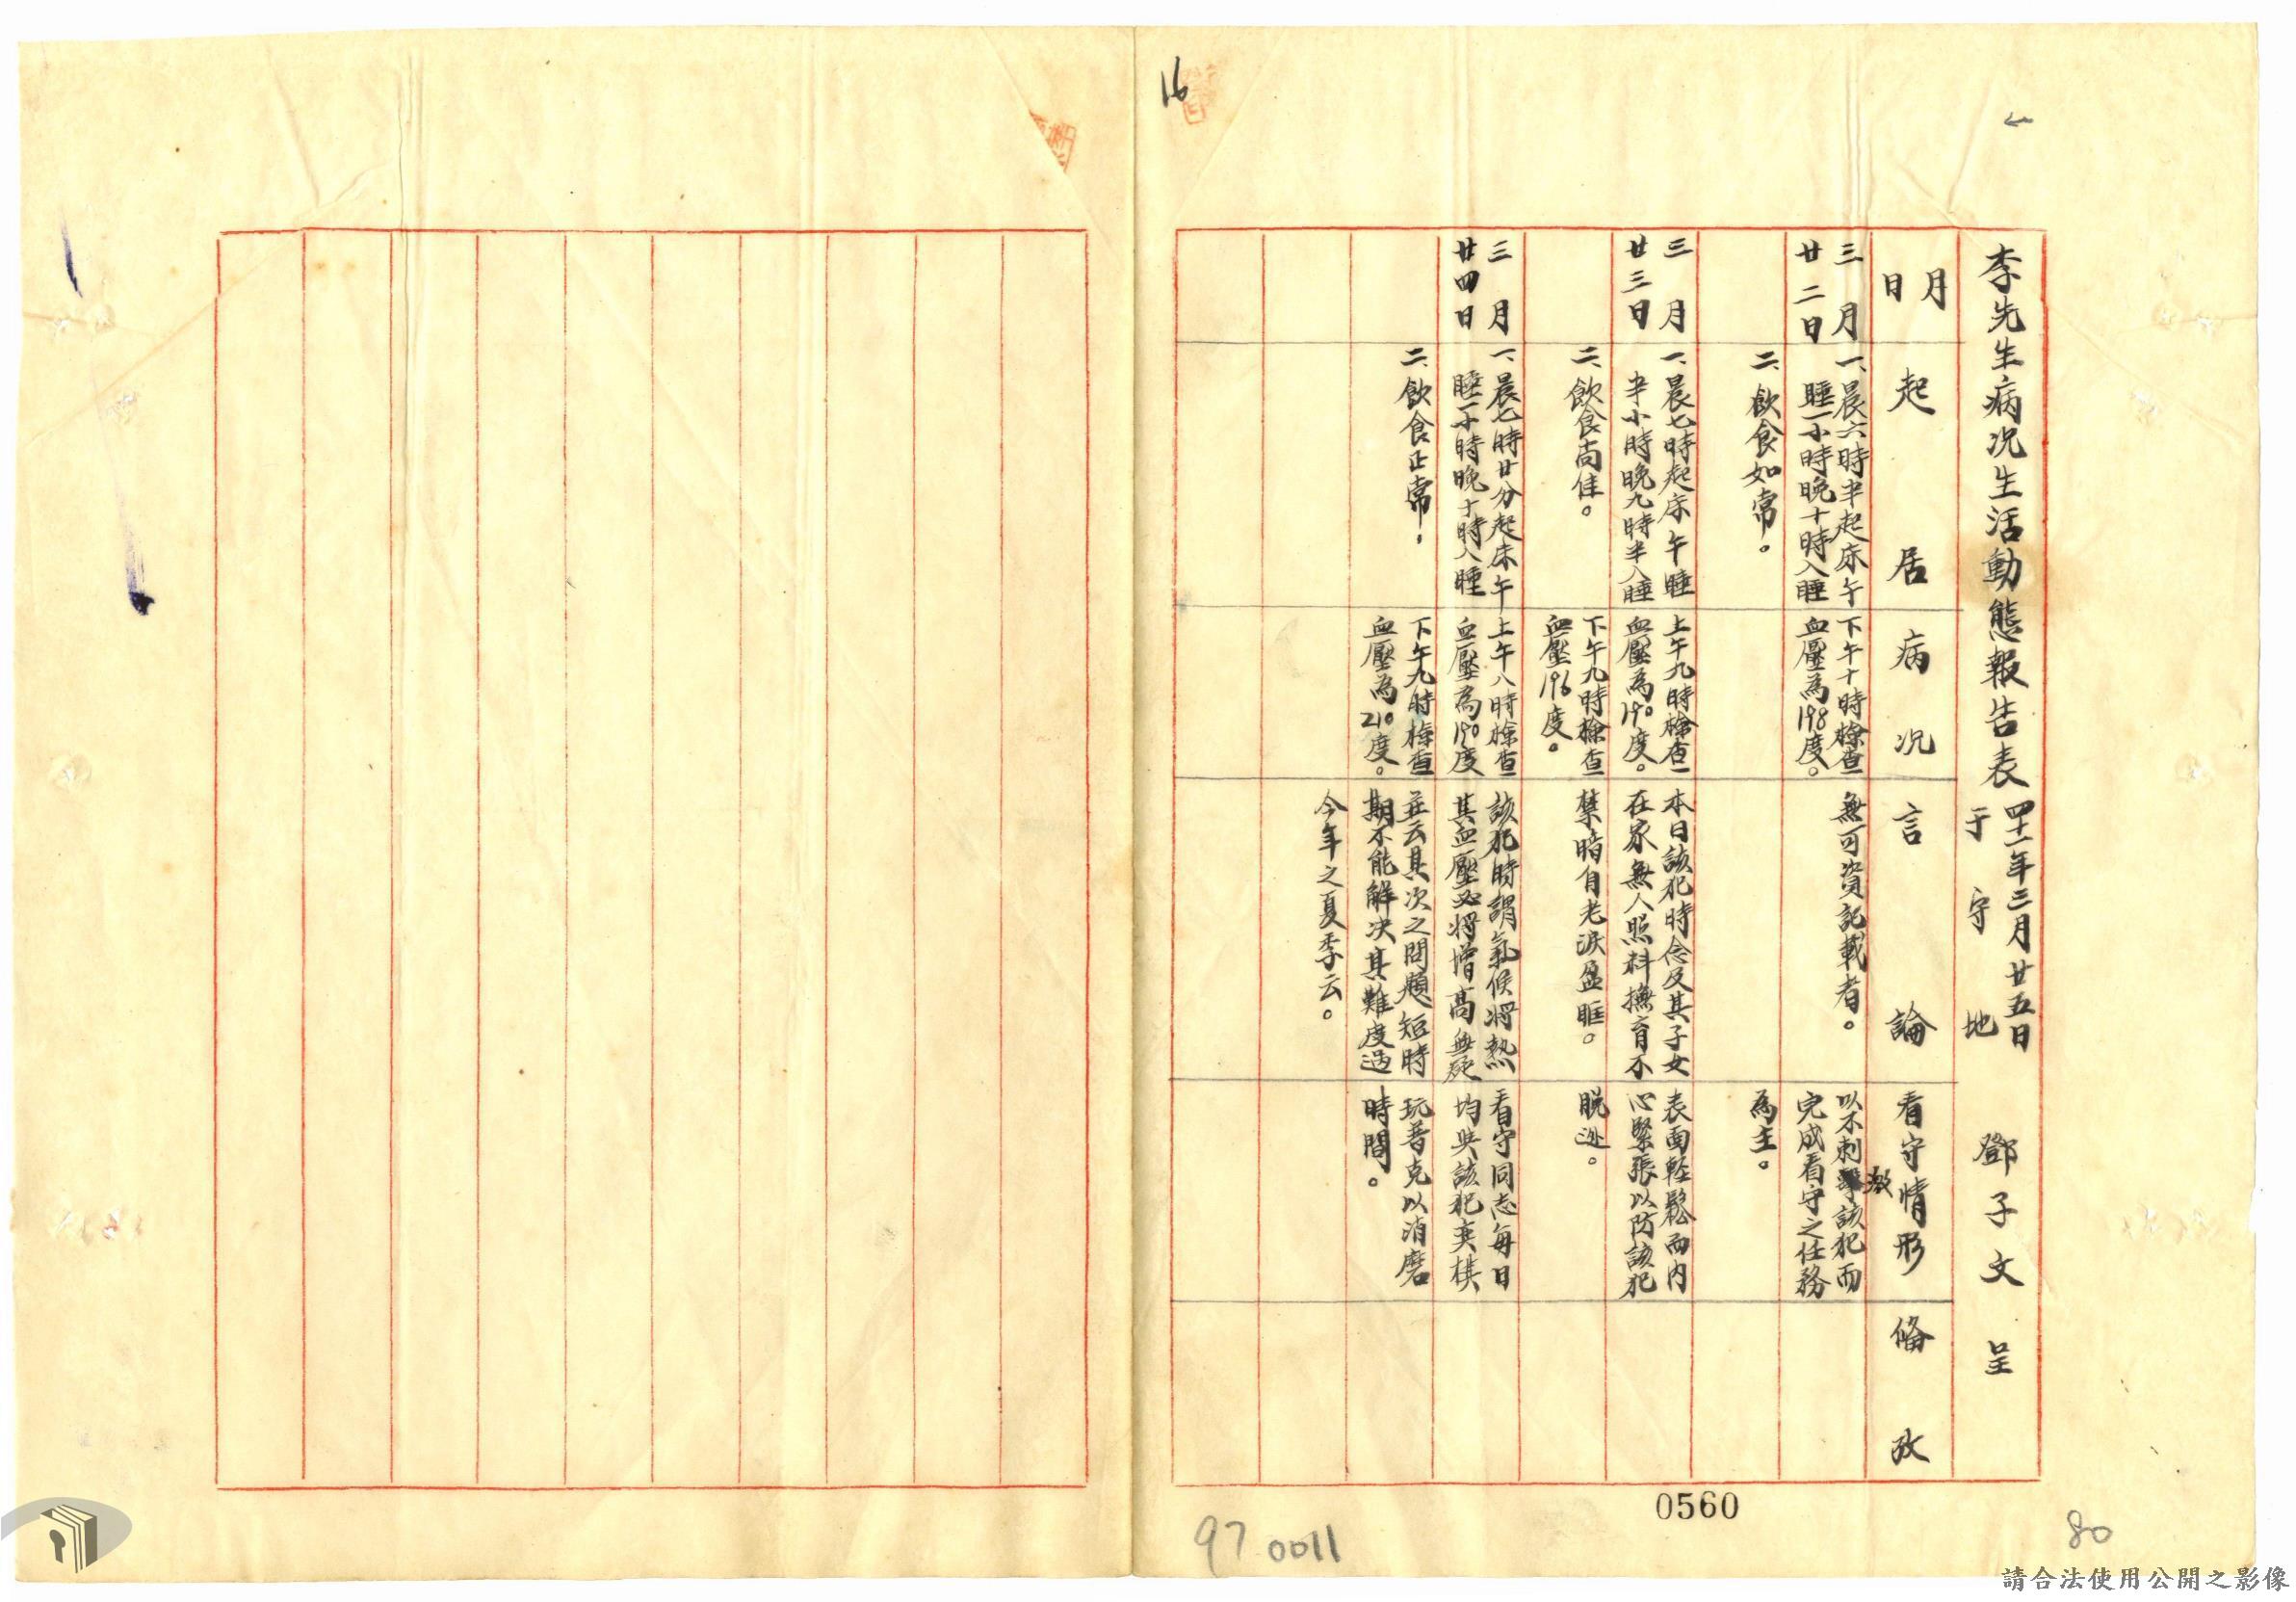 李先生病况生活動態報告表
四十一年三月廿五日
于守地
鄧子文呈
月
日
起居
病况
言論
看守情形
俻攷
三月
廿二日
一、晨六時半起床午
睡一小時晚十時入睡
二、飲食如常。
下午十時檢查
血壓為198度。
無可資記載者。
以不刺激該犯而
完成看守之任務
為主。
三月
廿三日
一、晨七時起床午睡
半小時晚九時半入睡
二、飲食尚佳。
上午九時檢查
血壓為190度。
下午九時檢查
血壓196度。
本日該犯時念及其子女
在家無人照料撫育不
禁暗自老淚盈眶。
表面輕鬆而内
心緊張以防該犯
脫逃。
三月
廿四日
一、晨七時廿分起床午
睡一小時晚十時入睡
二、飲食正常。
上午八時檢查
血壓為190度
下午九時檢查
血壓為210度。
該犯時謂氣候將熱
其血壓必將增高無疑
并云其次之問題短時
期不能解决其難度過
今年之夏季云。
看守同志每日
均與該犯奕棋
玩普克以消磨
時間。
16
0560
97 0011
80
請合法使用公開之影像